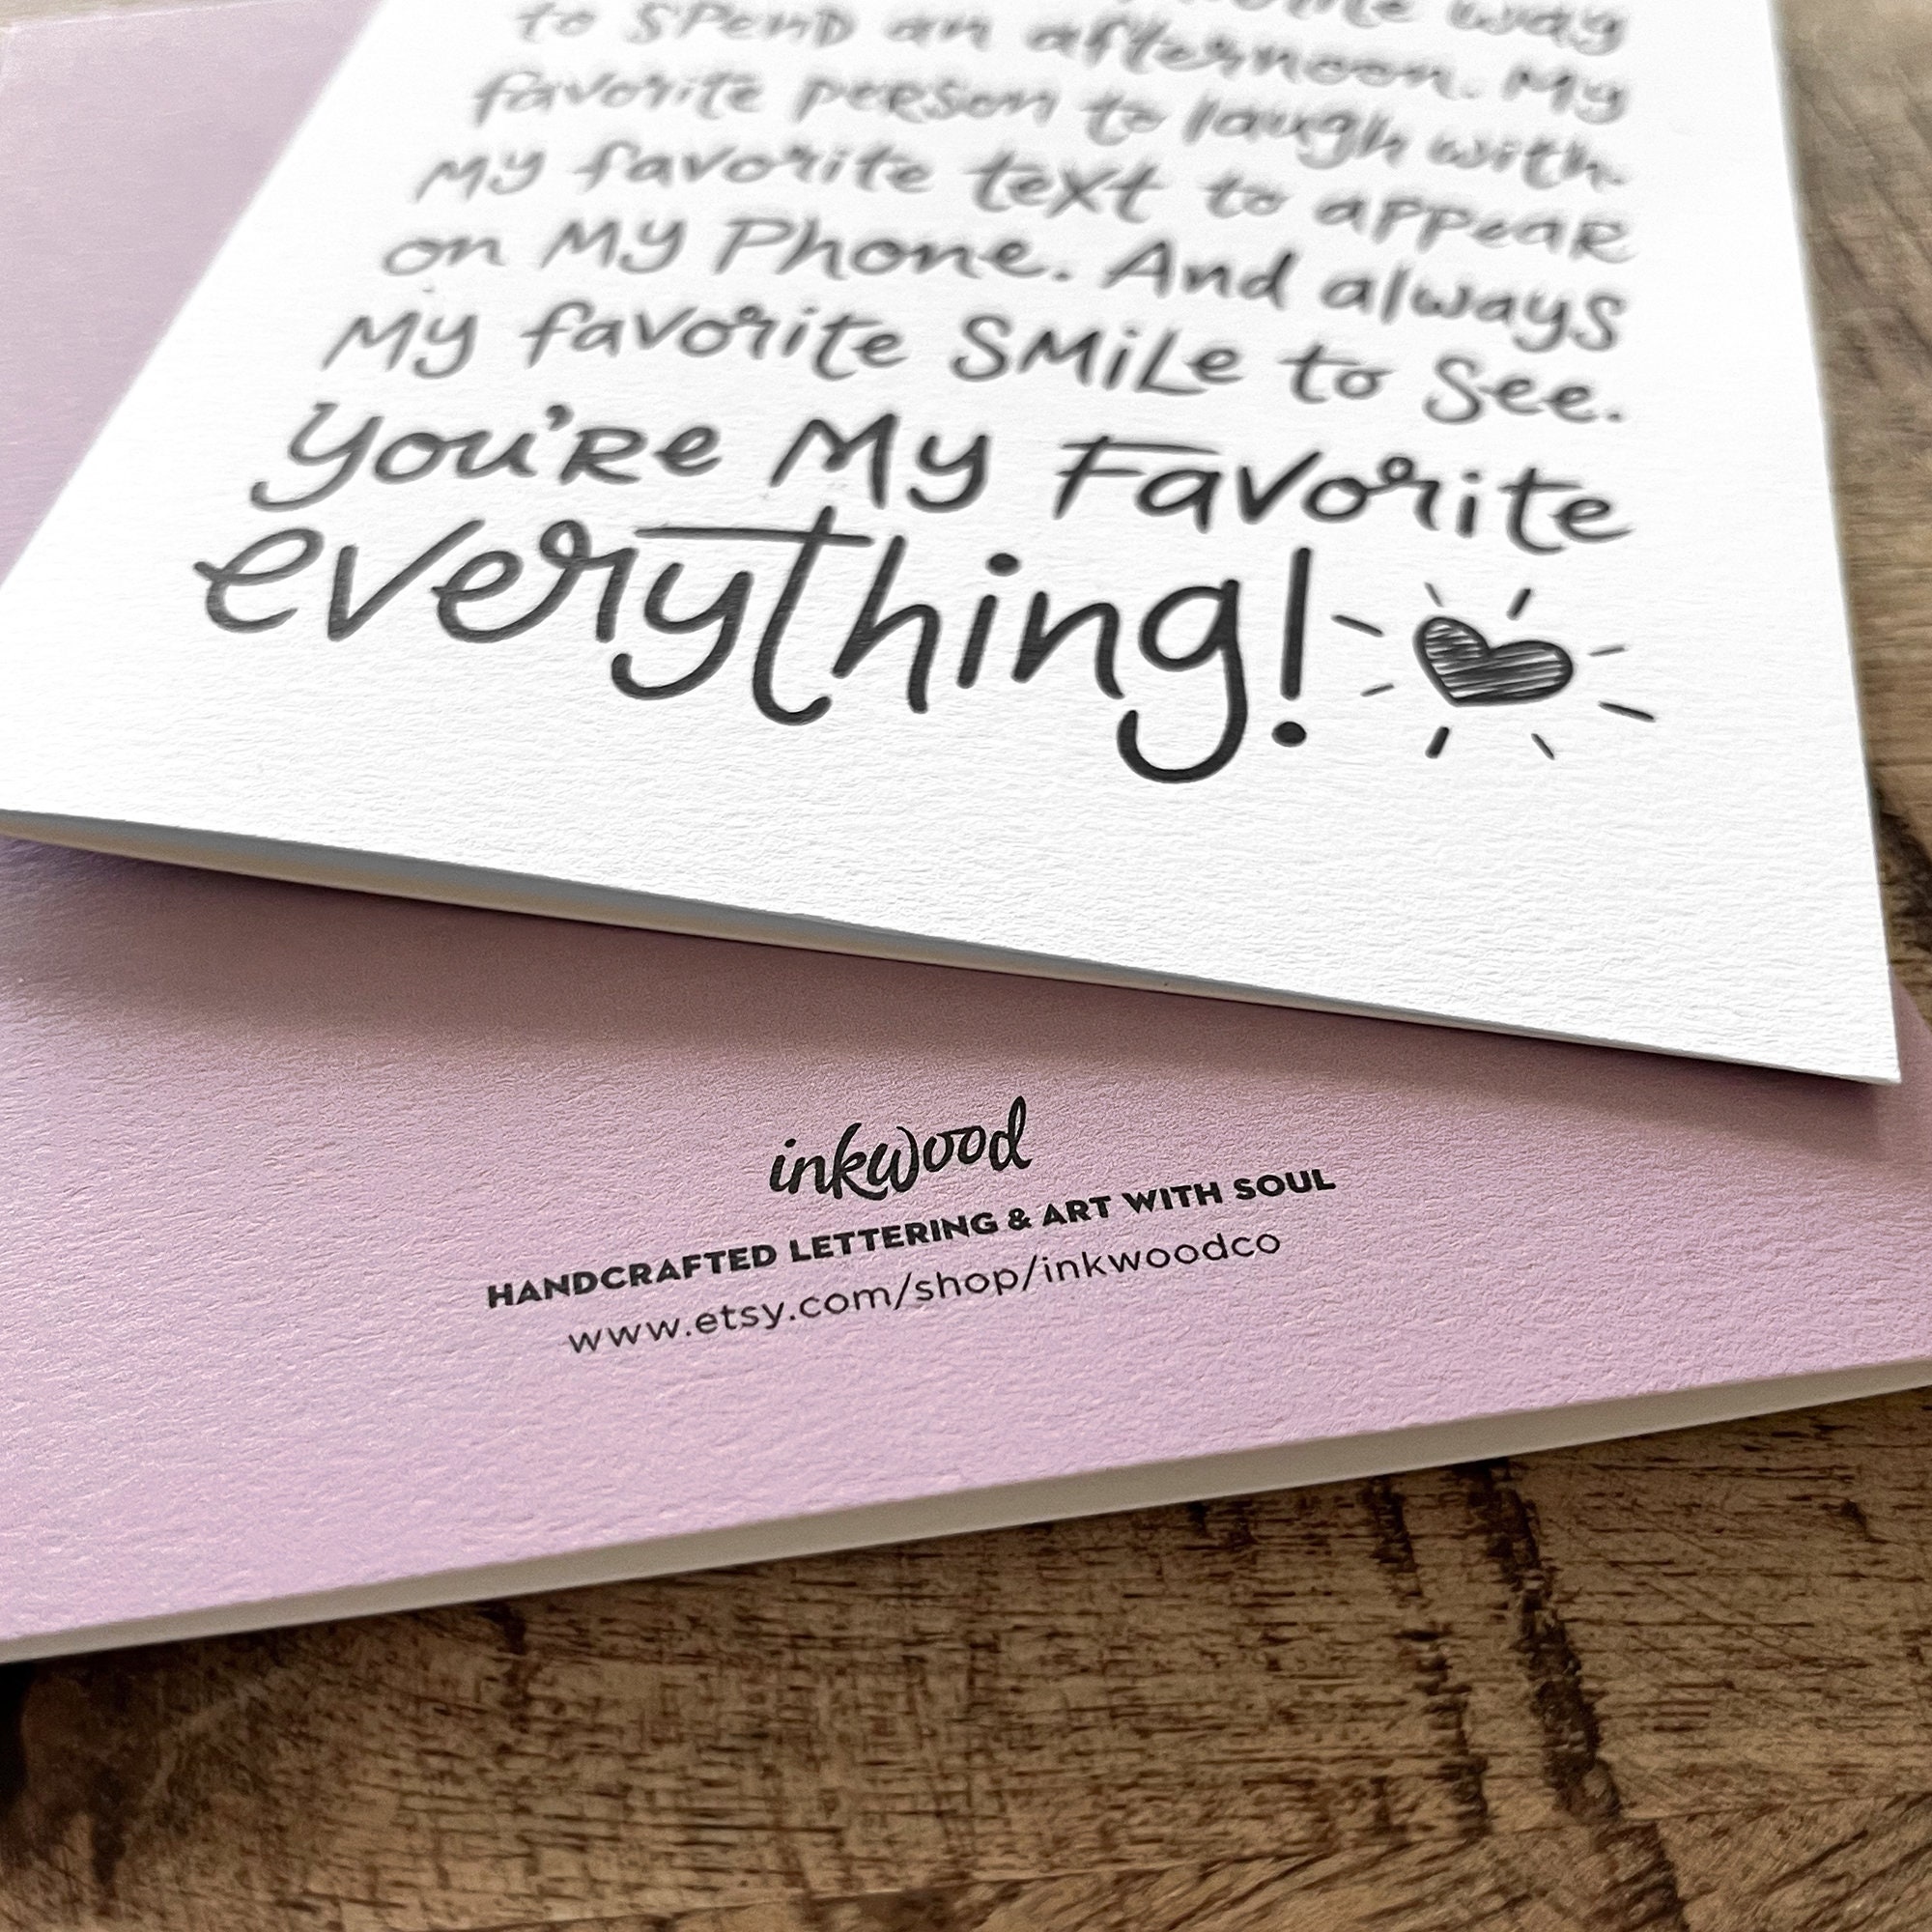 way
to SPEND an afternoon. My
favorite PERSON to laugh with.
My favorite text to appear
on My Phone. And always
My favorite SMiLe to See.
You're My Favorite
everything!
inkwood
HANDCRAFTED LETTERING & ART WITH SOUL
www.etsy.com/shop/inkwoodco